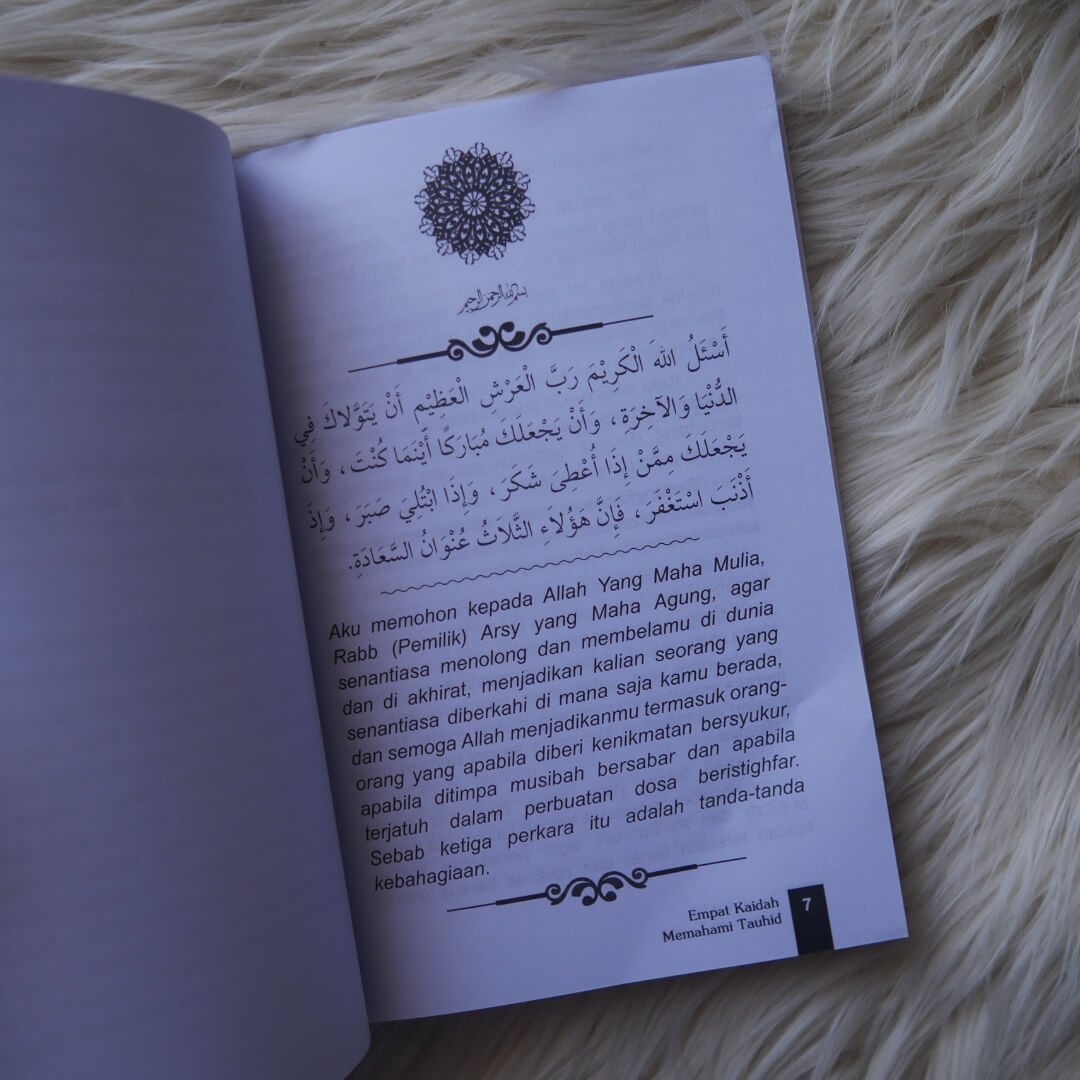 بسم الله الرحمن الرحيم
أَسْئَلُ اللهَ الْكَرِيْمَ رَبَّ الْعَرْشِ الْعَظِيْمِ أَنْ يَتَوَّلاَكَ فِي
الدُّنْيَا وَالآخِرَةِ، وَأَنْ يَجْعَلَكَ مُبَارَكًا أَيْنَمَا كُنْتَ، وَأَنْ
يَجْعَلَكَ مِمَّنْ إِذَا أُعْطِىَ شَكَرَ، وَإِذَا ابْتُلِيَ صَبَرَ، وَإِذَ
أَذْنَبَ اسْتَغْفَرَ، فَإِنَّ هَؤُلاَءِ الثَّلاَثُ عُنْوَانُ السَّعَادَةِ.
Aku memohon kepada Allah Yang Maha Mulia,
Rabb (Pemilik) Arsy yang Maha Agung, agar
senantiasa menolong dan membelamu di dunia
dan di akhirat, menjadikan kalian seorang yang
senantiasa diberkahi di mana saja kamu berada,
dan semoga Allah menjadikanmu termasuk orang-
orang yang apabila diberi kenikmatan bersyukur,
apabila ditimpa musibah bersabar dan apabila
terjatuh dalam perbuatan dosa beristighfar.
Sebab ketiga perkara itu adalah tanda-tanda
kebahagiaan.
Empat Kaidah
Memahami Tauhid
7